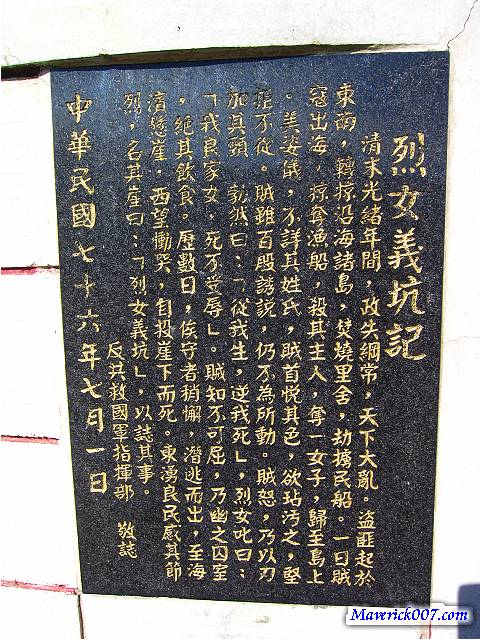 烈女義坑記
清末光緒年間，政失綱常，天下大亂。盜匪起於
東南，轉掠沿海諸島，焚燒里舍，劫擄民船。一日賊
寇出海，掠奪漁船，殺其主人，奪一女子，歸至島上
。美姿儀，不詳其姓氏，賊首悅其色，欲玷污之，堅
拒不從。賊雖百般誘說，仍不為所動。賊怒，乃以刃
加其頸，勃然曰：「從我生，逆我死」，烈女叱曰：
「我良家女，死不受辱」。賊知不可屈，乃幽之囚室
，絕其飲食。歷數日，俟守者稍懈，潛逃而出，至海
濱懸崖，西望慟哭，自投崖下而死。東湧良民感其節
烈，名其崖曰：「烈女義坑」，以誌其事。
反共救國軍指揮部　敬誌
中華民國七十六年七月一日
Maverick007.com